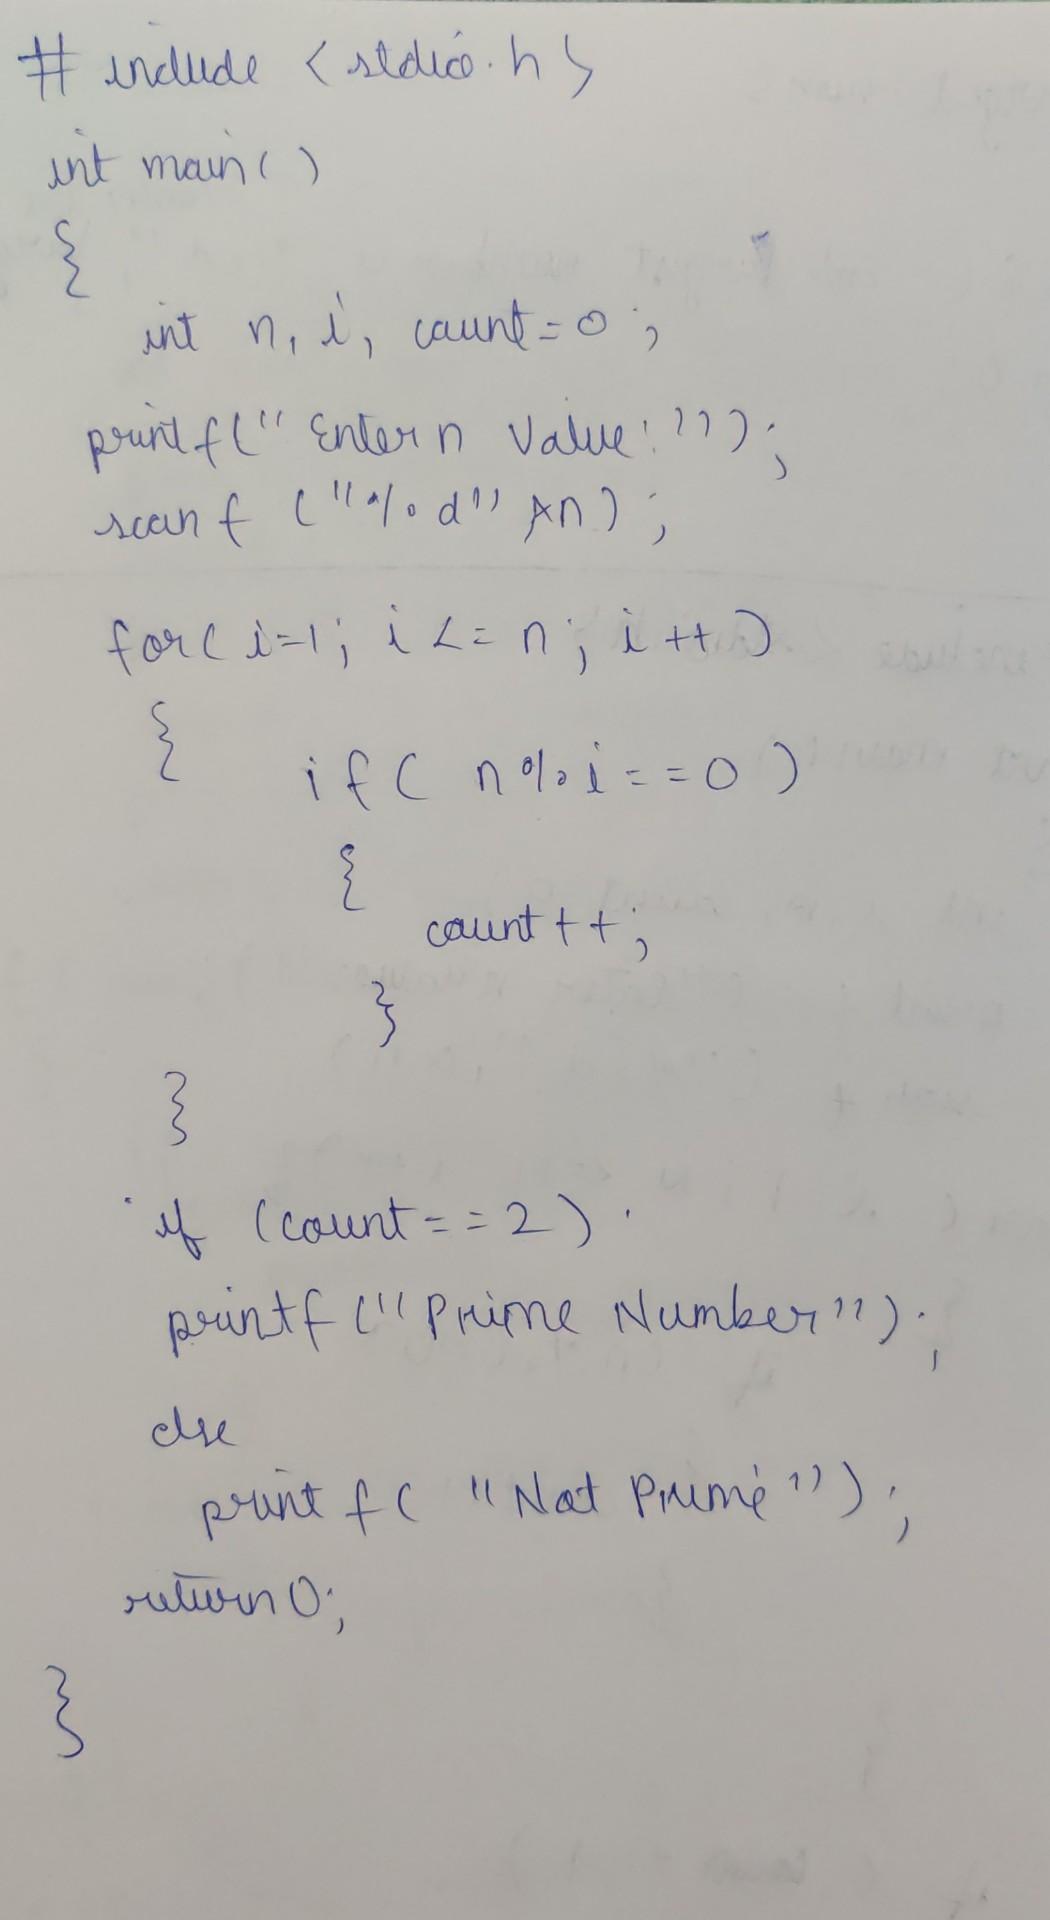 # include <stdio.h>
int main()
{
int n, i, count=0;
printf("Enter n Value:");
scanf ("%d" &n);
for(i=1; i<=n; i++)
{ if( n%i==0)
{
count++;
}
}
if (count==2)
printf("Prime Number");
else
printf("Not Prime");
return 0;
}